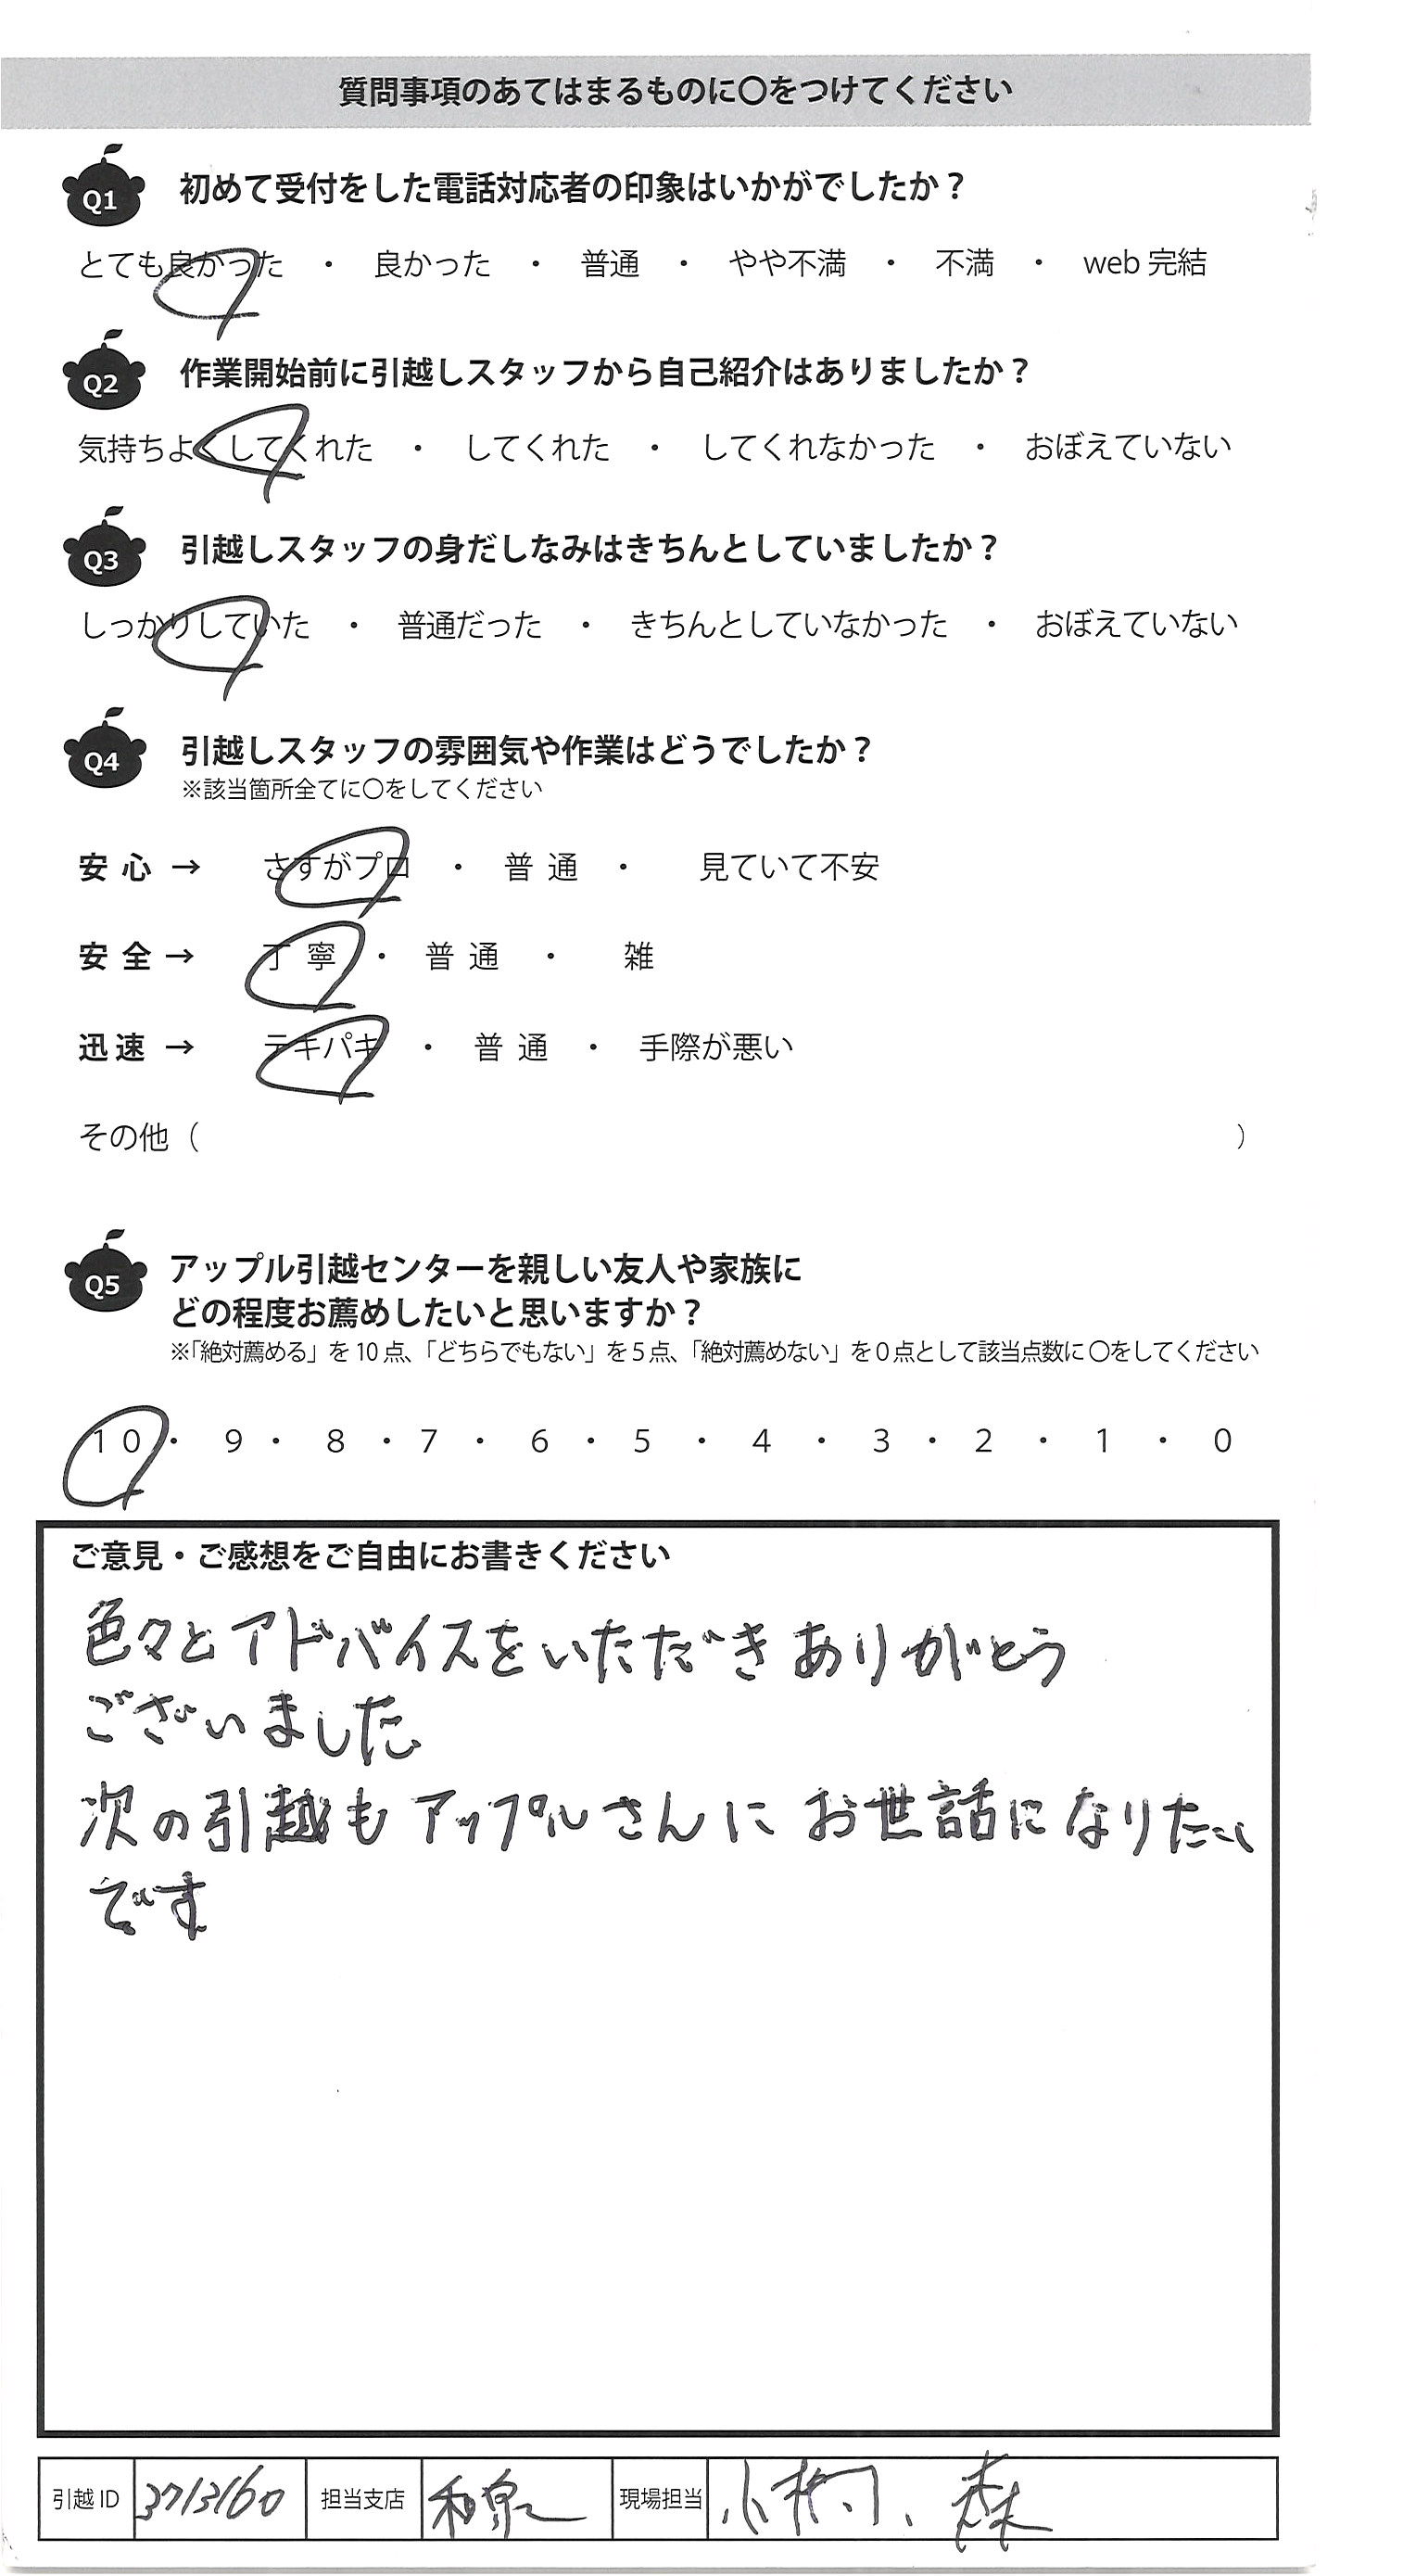 質問事項のあてはまるものに〇をつけてください
Q1 初めて受付をした電話対応者の印象はいかがでしたか？
とても良かった ・ 良かった ・ 普通 ・ やや不満 ・ 不満 ・ web 完結
Q2 作業開始前に引越しスタッフから自己紹介はありましたか？
気持ちよくしてくれた ・ してくれた ・ してくれなかった ・ おぼえていない
Q3 引越しスタッフの身だしなみはきちんとしていましたか？
しっかりしていた ・ 普通だった ・ きちんとしていなかった ・ おぼえていない
Q4 引越しスタッフの雰囲気や作業はどうでしたか？
※該当箇所全てに〇をしてください
安心 → さすがプロ ・ 普通 ・ 見ていて不安
安全 → 丁寧 ・ 普通 ・ 雑
迅速 → テキパキ ・ 普通 ・ 手際が悪い
その他（ ）
Q5 アップル引越センターを親しい友人や家族に
どの程度お薦めしたいと思いますか？
※「絶対薦める」を 10 点、「どちらでもない」を 5 点、「絶対薦めない」を 0 点として該当点数に〇をしてください
10 ・ 9 ・ 8 ・ 7 ・ 6 ・ 5 ・ 4 ・ 3 ・ 2 ・ 1 ・ 0
ご意見・ご感想をご自由にお書きください
色々とアドバイスをいただきありがとう
ございました
次の引越もアップルさんにお世話になりたい
です
引越 ID 3713160 担当支店 和泉 現場担当 森